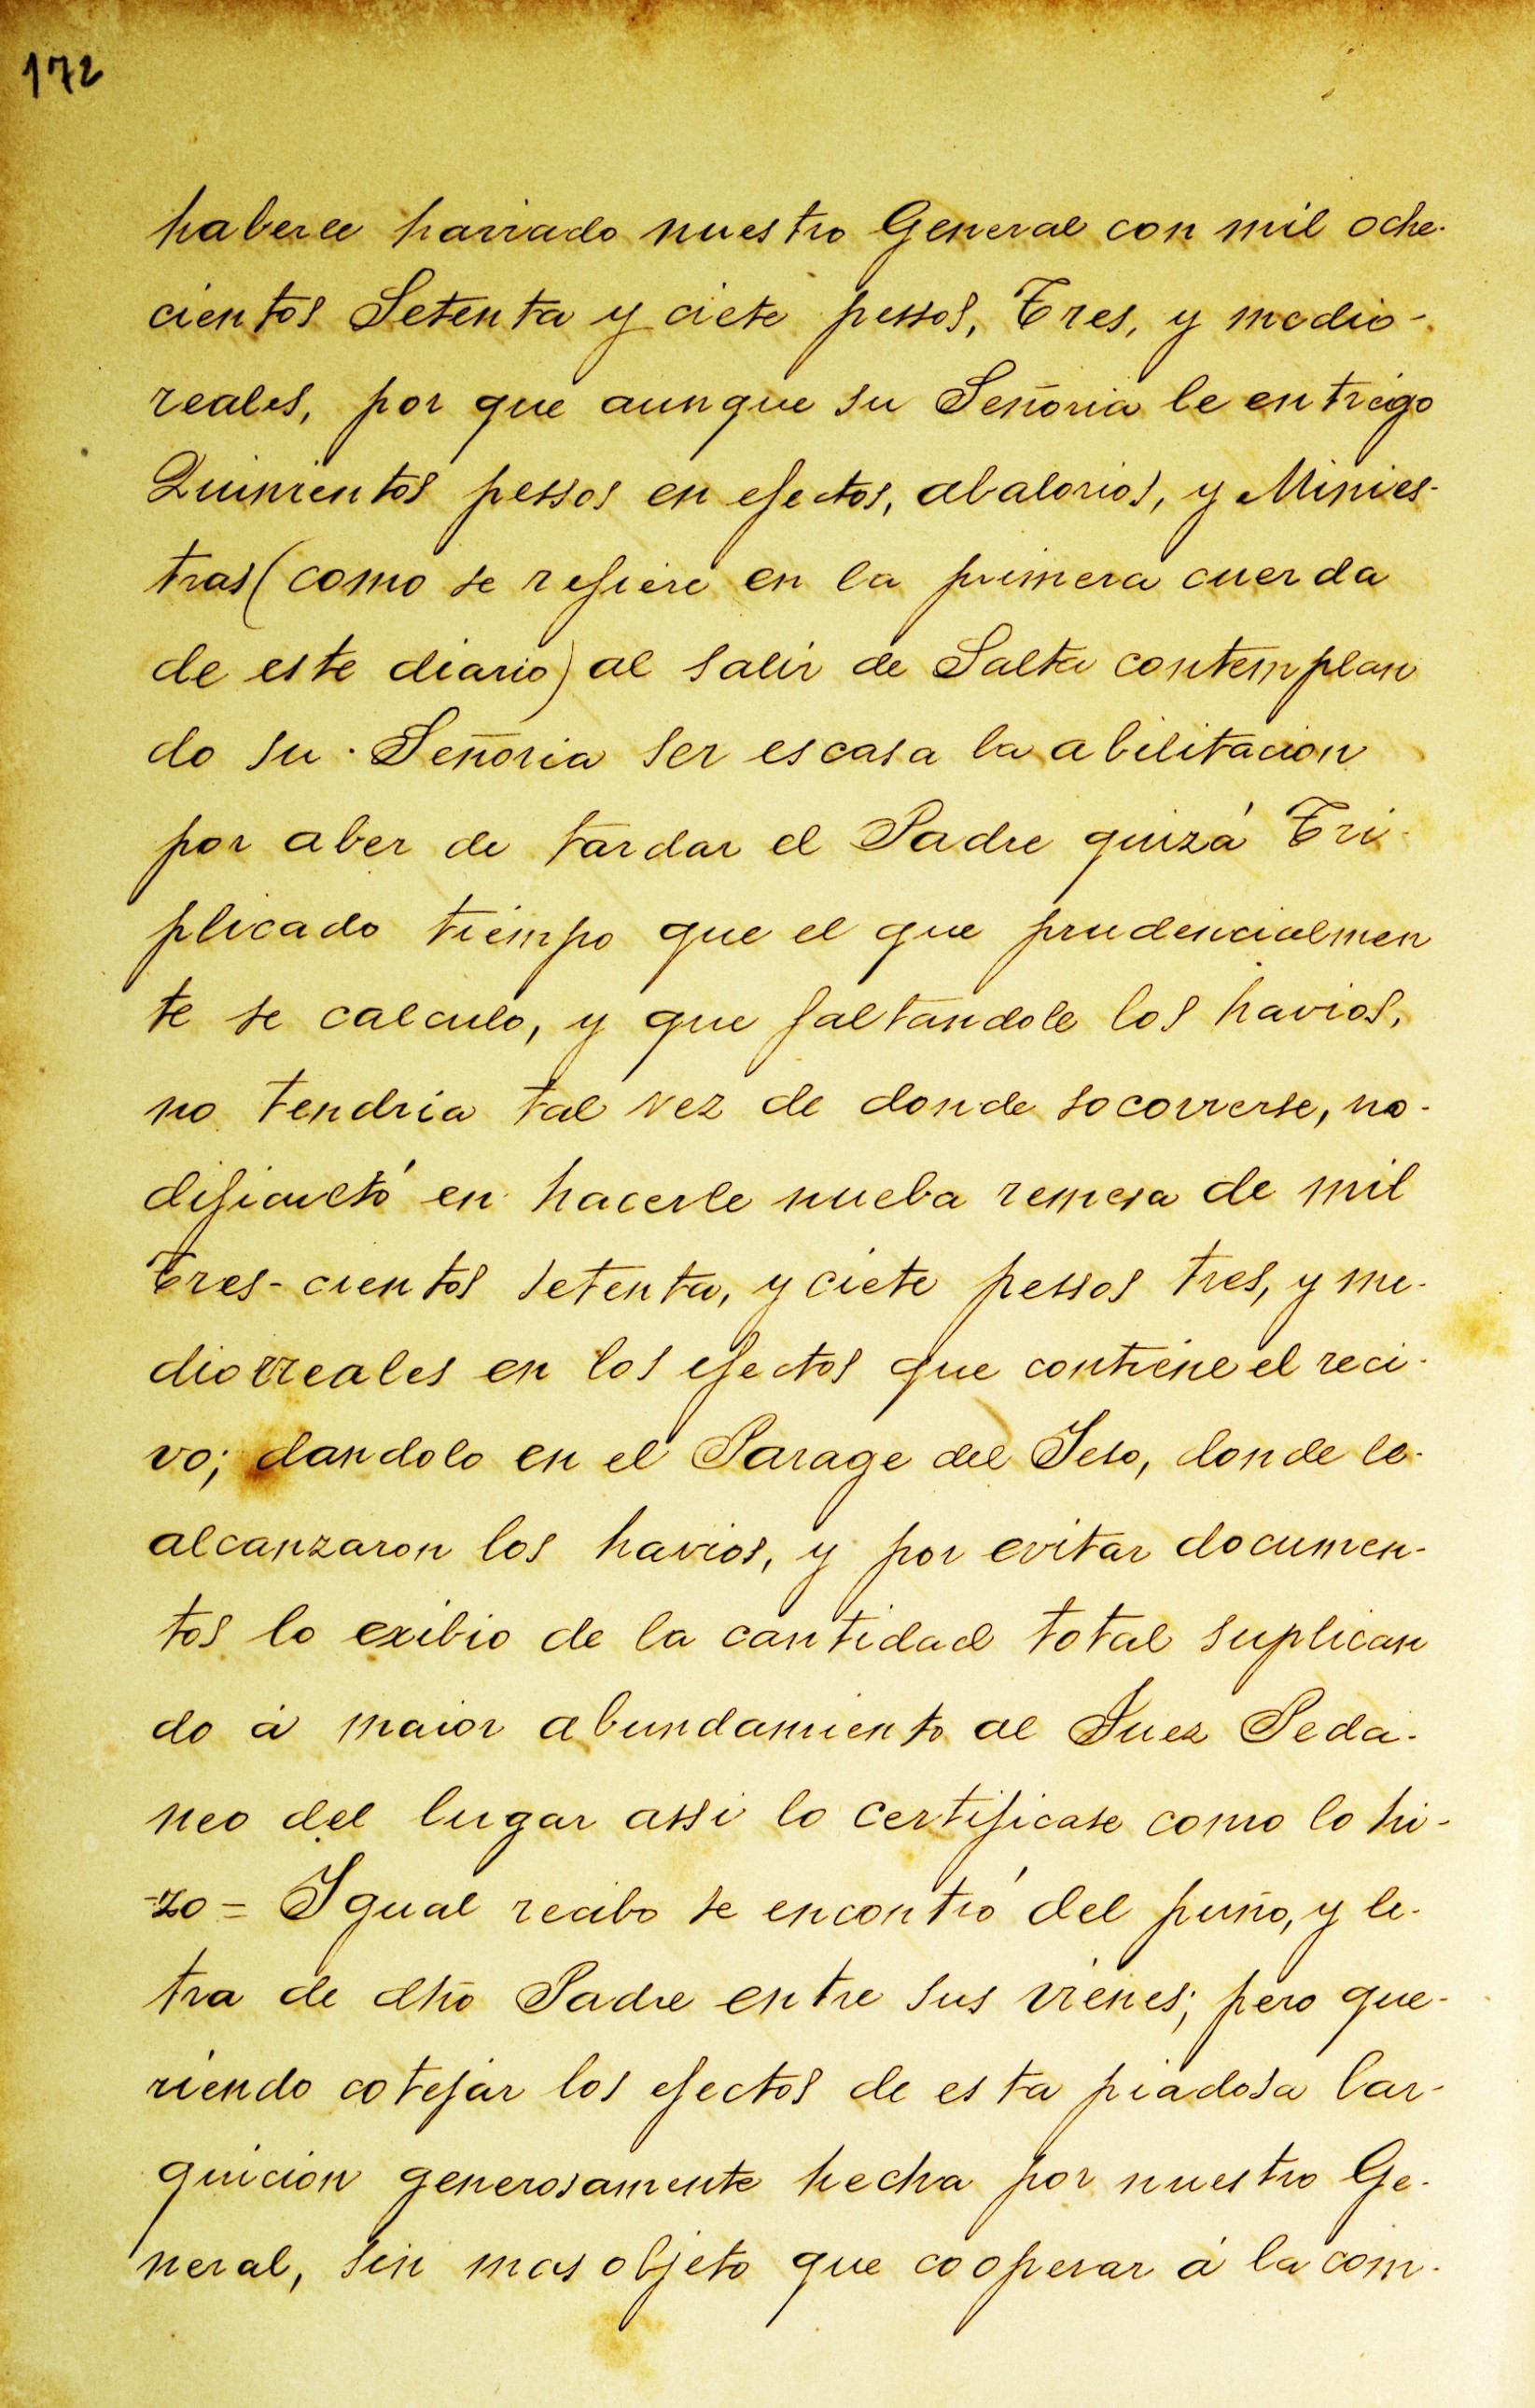 172
haberle harriado nuestro General con mil oche-
cientos Setenta y ciete pessos, Tres, y medio-
reales, por que aunque su Señoria le entrego
Quinientos pessos en efectos, abalorios, y Minies-
tras (como se refiere en la primera cuerda
de este diario) al salir de Salta contemplan
do su Señoria ser escasa la abilitacion
por aber de tardar el Padre quizá Tri-
plicado tiempo que el que prudencialmen
te se calculo, y que faltandole los havios,
no tendria tal vez de donde socorrerse, no-
dificultó en hacerle nueba remesa de mil
Tres-cientos setenta, y ciete pessos tres, y me-
diorreales en los efectos que contiene el reci-
vo; dandolo en el Parage del Yeso, donde le-
alcanzaron los havios, y por evitar documen-
tos lo exibio de la cantidad total suplican
do á maior abundamiento al Juez Peda-
neo del lugar assi lo certificase como lo hi-
-zo = Igual recibo se encontró del puño, y le-
tra de dho Padre entre sus vienes; pero que-
riendo cotejar los efectos de esta piadosa lar-
guicion generosamente hecha por nuestro Ge-
neral, sin mas objeto que cooperar á la com-